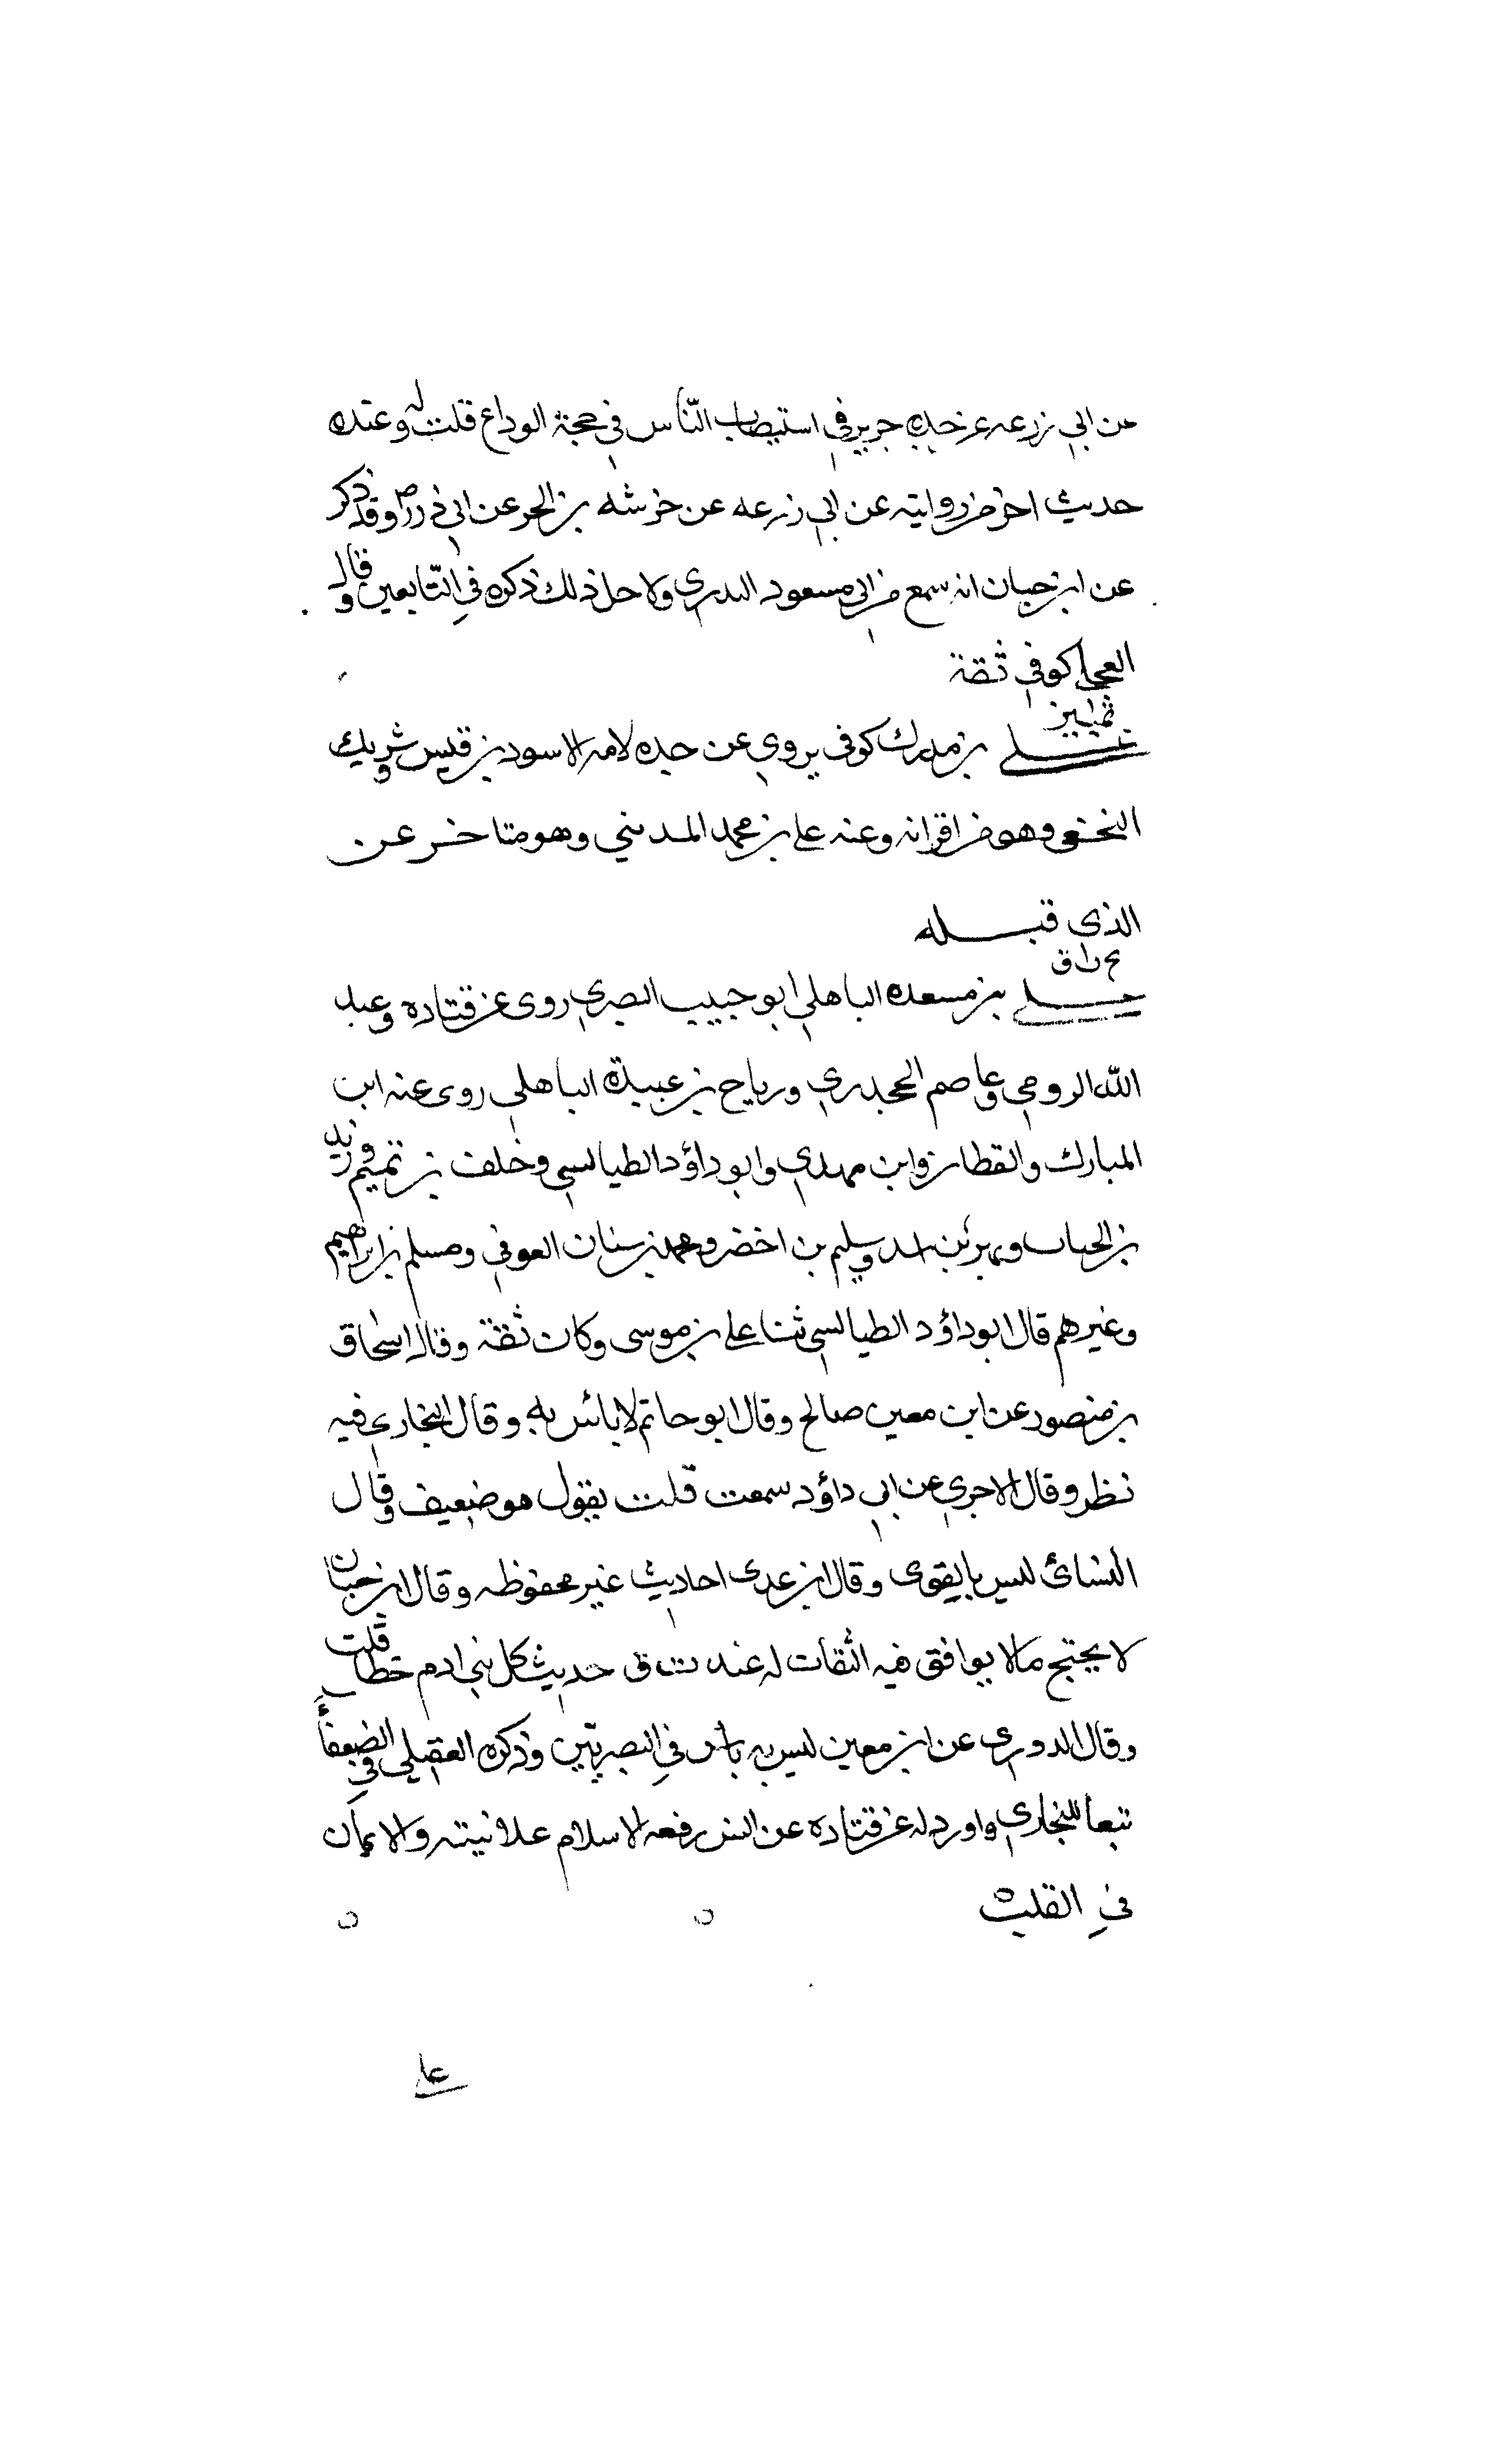 عن ابي زرعه عن جده جرير في استنصات النّاس في حجة الوداع قلت له وعنده
حديث اخر من روايته عن ابي زرعه عن خرشه بن الحر عن ابي ذر رض وقد ذكر
عن ابن حبان انه سمع من ابي مسعود البدري ولاجل ذلك ذكره في التّابعين وقال
العجلي كوفي ثقة
تمييز
علي بن مدرك كوفي يروي عن جده لامه الاسود بن قيس وشريك
النخعي وهو من اقرانه وعنه علي بن محمد المديني وهو متاخر عن
الذي قبله
علي بن مسعده الباهلي ابو حبيب البصري روى عن قتاده وعبد
الله الرومي وعاصم الجحدري ورياح بن عبيدة الباهلي روى عنه ابن
المبارك والقطان وابن مهدي وابو داؤد الطيالسي وخلف بن تميم وزيد
بن الحباب وبهز بن اسد وسليم بن اخضر ومحمد بن سنان العوقي ومسلم بن ابراهيم
وغيرهم قال ابو داؤد الطيالسي ثنا علي بن موسى وكان ثقة وقال اسحاق
بن منصور عن ابن معين صالح وقال ابو حاتم لا بائس به وقال البخاري فيه
نظر وقال الاجري عن ابي داؤد سمعت قلت يقول هو ضعيف وقال
النسائ ليس بالقوى وقال ابن عدى احاديث غير محفوظه وقال ابن حبان
لا يحتج مالا يوافق فيه الثقات له عند ت ق حديث كل بني ادم خطا قلت
وقال الدوري عن ابن معين ليس به باس في البصريين وذكره العقيلي في الضعفاً
تبعا للبخاري واورد له عن قتاده عن انس رفعه الاسلام علانيته والايمان
في القلب
علي